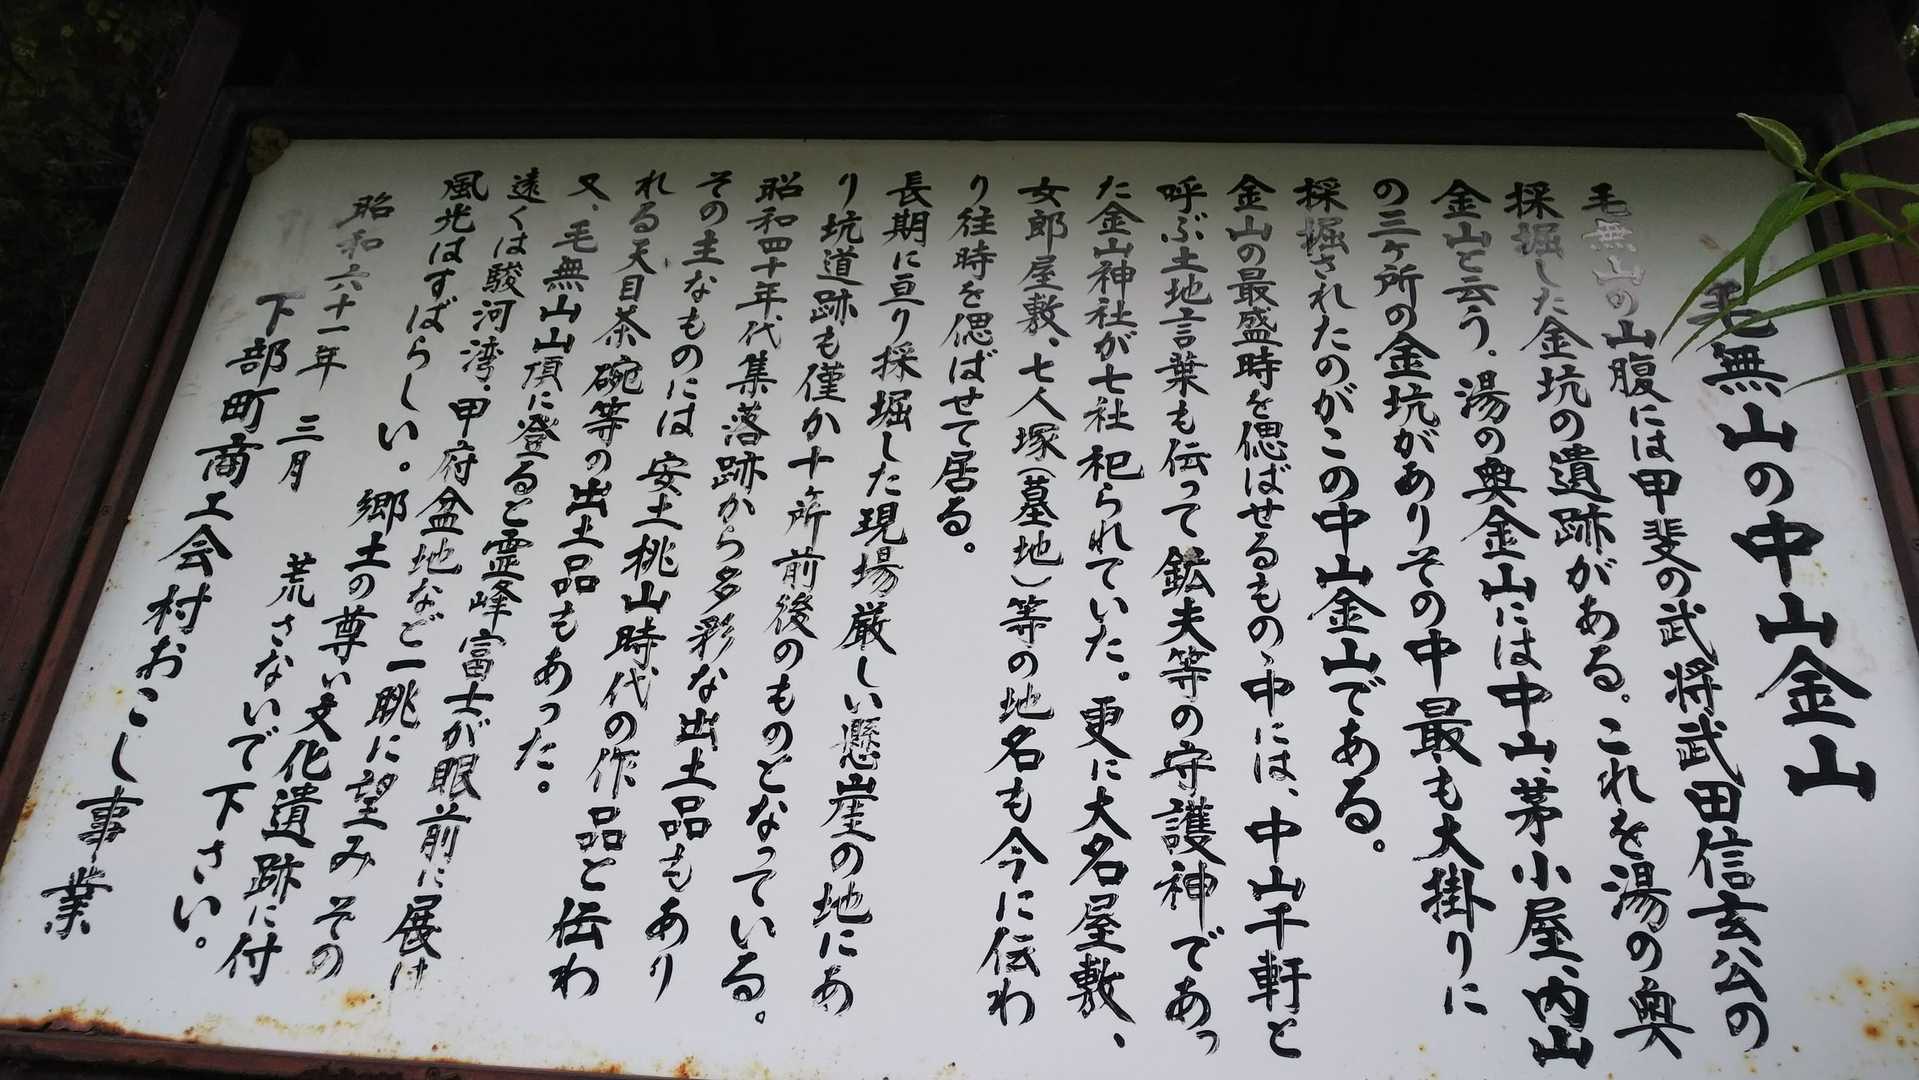 毛無山の中山金山
毛無山の山腹には甲斐の武将武田信玄公の
採掘した金坑の遺跡がある。これを湯の奥
金山と云う。湯の奥金山には中山、茅小屋、内山
の三ヶ所の金坑がありその中最も大掛りに
採掘されたのがこの中山金山である。
金山の最盛時を偲ばせるもの、中には、中山千軒と
呼ぶ土地言葉も伝って鉱夫等の守護神であっ
た金山神社が七社祀られていた。更に大名屋敷、
女郎屋敷、七人塚(墓地)等の地名も今に伝わ
り往時を偲ばせて居る。
長期に亘り採堀した現場厳しい懸崖の地にあ
り坑道跡も僅か十ヶ所前後のものとなっている。
昭和四十年代集落跡から多彩な出土品もあり
その主なものには安土桃山時代の作品と伝わ
れる天目茶碗等の出土品もあった。
又、毛無山山頂に登ると霊峰富士が眼前に展け
遠くは駿河湾・甲府盆地など一眺に望みその
風光はすばらしい。郷土の尊い文化遺跡に付
荒さないで下さい。
昭和六十一年 三月
下部町商工会村おこし事業